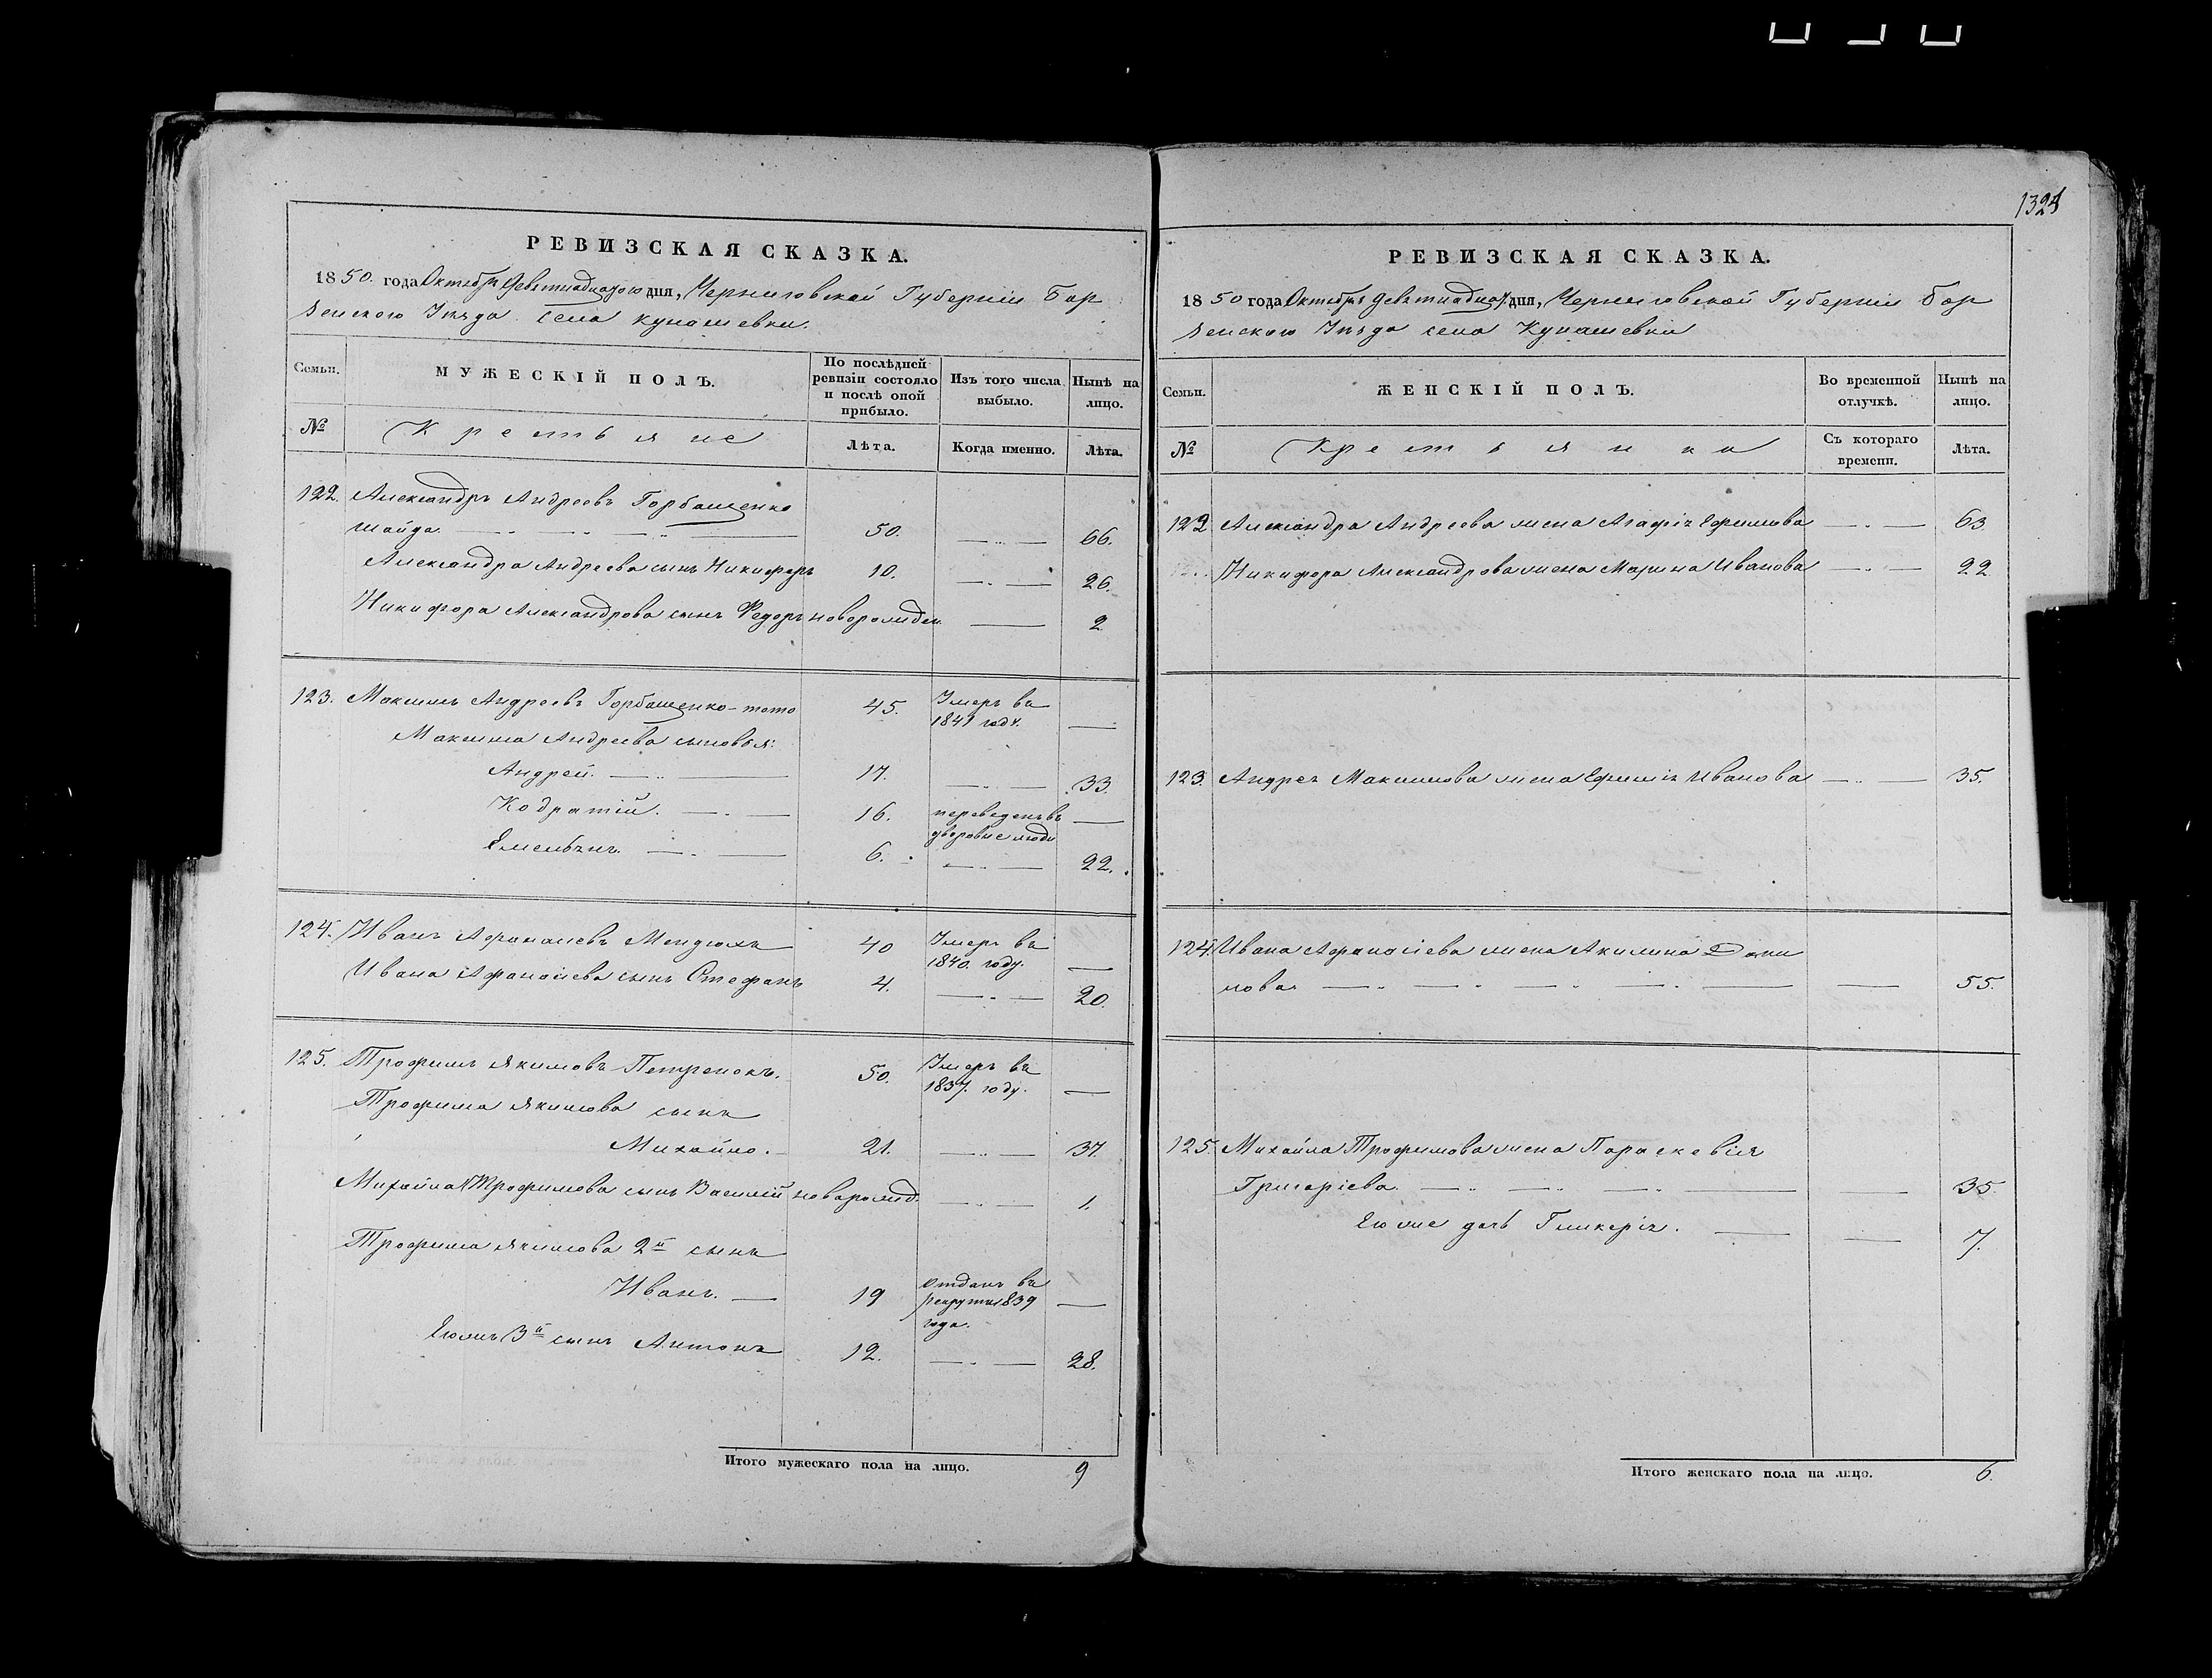 1324
РЕВИЗСКАЯ СКАЗКА.
1850. года Октября девятнадцатого дня, Черниговской Губерніи Бор
зенского Уѣзда села Кунашевки.
Семьи.
МУЖЕСКІЙ ПОЛЪ.
По послѣдней ревизіи состояло и послѣ оной прибыло.
Изъ того числа выбыло.
Нынѣ на лицо.
№
Крестьяне
Лѣта.
Когда именно.
Лѣта.
122. Александръ Андреевъ Горбашенко
шайда. 50. 66.
Александра Андреева сынъ Никифоръ 10. 26.
Никифора Александрова сынъ Федоръ новорожден. 2
123. Максимъ Андреевъ Горбашенко-тожъ 45. Умеръ въ
1841 году.
Максима Андреева сыновья:
Андрей. 17. 33.
Кодратій. 16. переведенъ въ
дворовые люди
Емельянъ. 6. 22.
124. Иванъ Афанасіевъ 40 Умеръ въ
1840. году.
Ивана Афанасіева сынъ Стефанъ 4. 20.
125. Трофимъ Якимовъ Петренокъ. 50. Умеръ въ
1837. году.
Трофима Якимова сынъ
Михайло. 21. 37.
Михайла Трофимова сынъ Василій новорожд. 1.
Трофима Якимова 2й сынъ
Иванъ. 19 Отданъ въ
рекруты 1839
года.
Его же 3й сынъ Антонъ 12. 28.
Итого мужескаго пола на лицо. 9
РЕВИЗСКАЯ СКАЗКА.
1850 года Октября девятнадцат. дня, Черниговской Губерніи Бор
зенского Уѣзда села Кунашевки
Семьи.
ЖЕНСКІЙ ПОЛЪ.
Во временной отлучкѣ.
Нынѣ на лицо.
№
Крестьянки
Съ котораго времени.
Лѣта.
122. Александра Андреева жена Агафія Ефимова 63
Никифора Александрова жена Марина Иванова 22
123. Андрея Максимова жена Ефимія Иванова 35.
124. Ивана Афанасіева жена Акилина Дани
лова 55.
125. Михайла Трофимова жена Параскевія
Григоріева. 35.
Его же дочь Гликерія. 7.
Итого женскаго пола на лицо. 6.